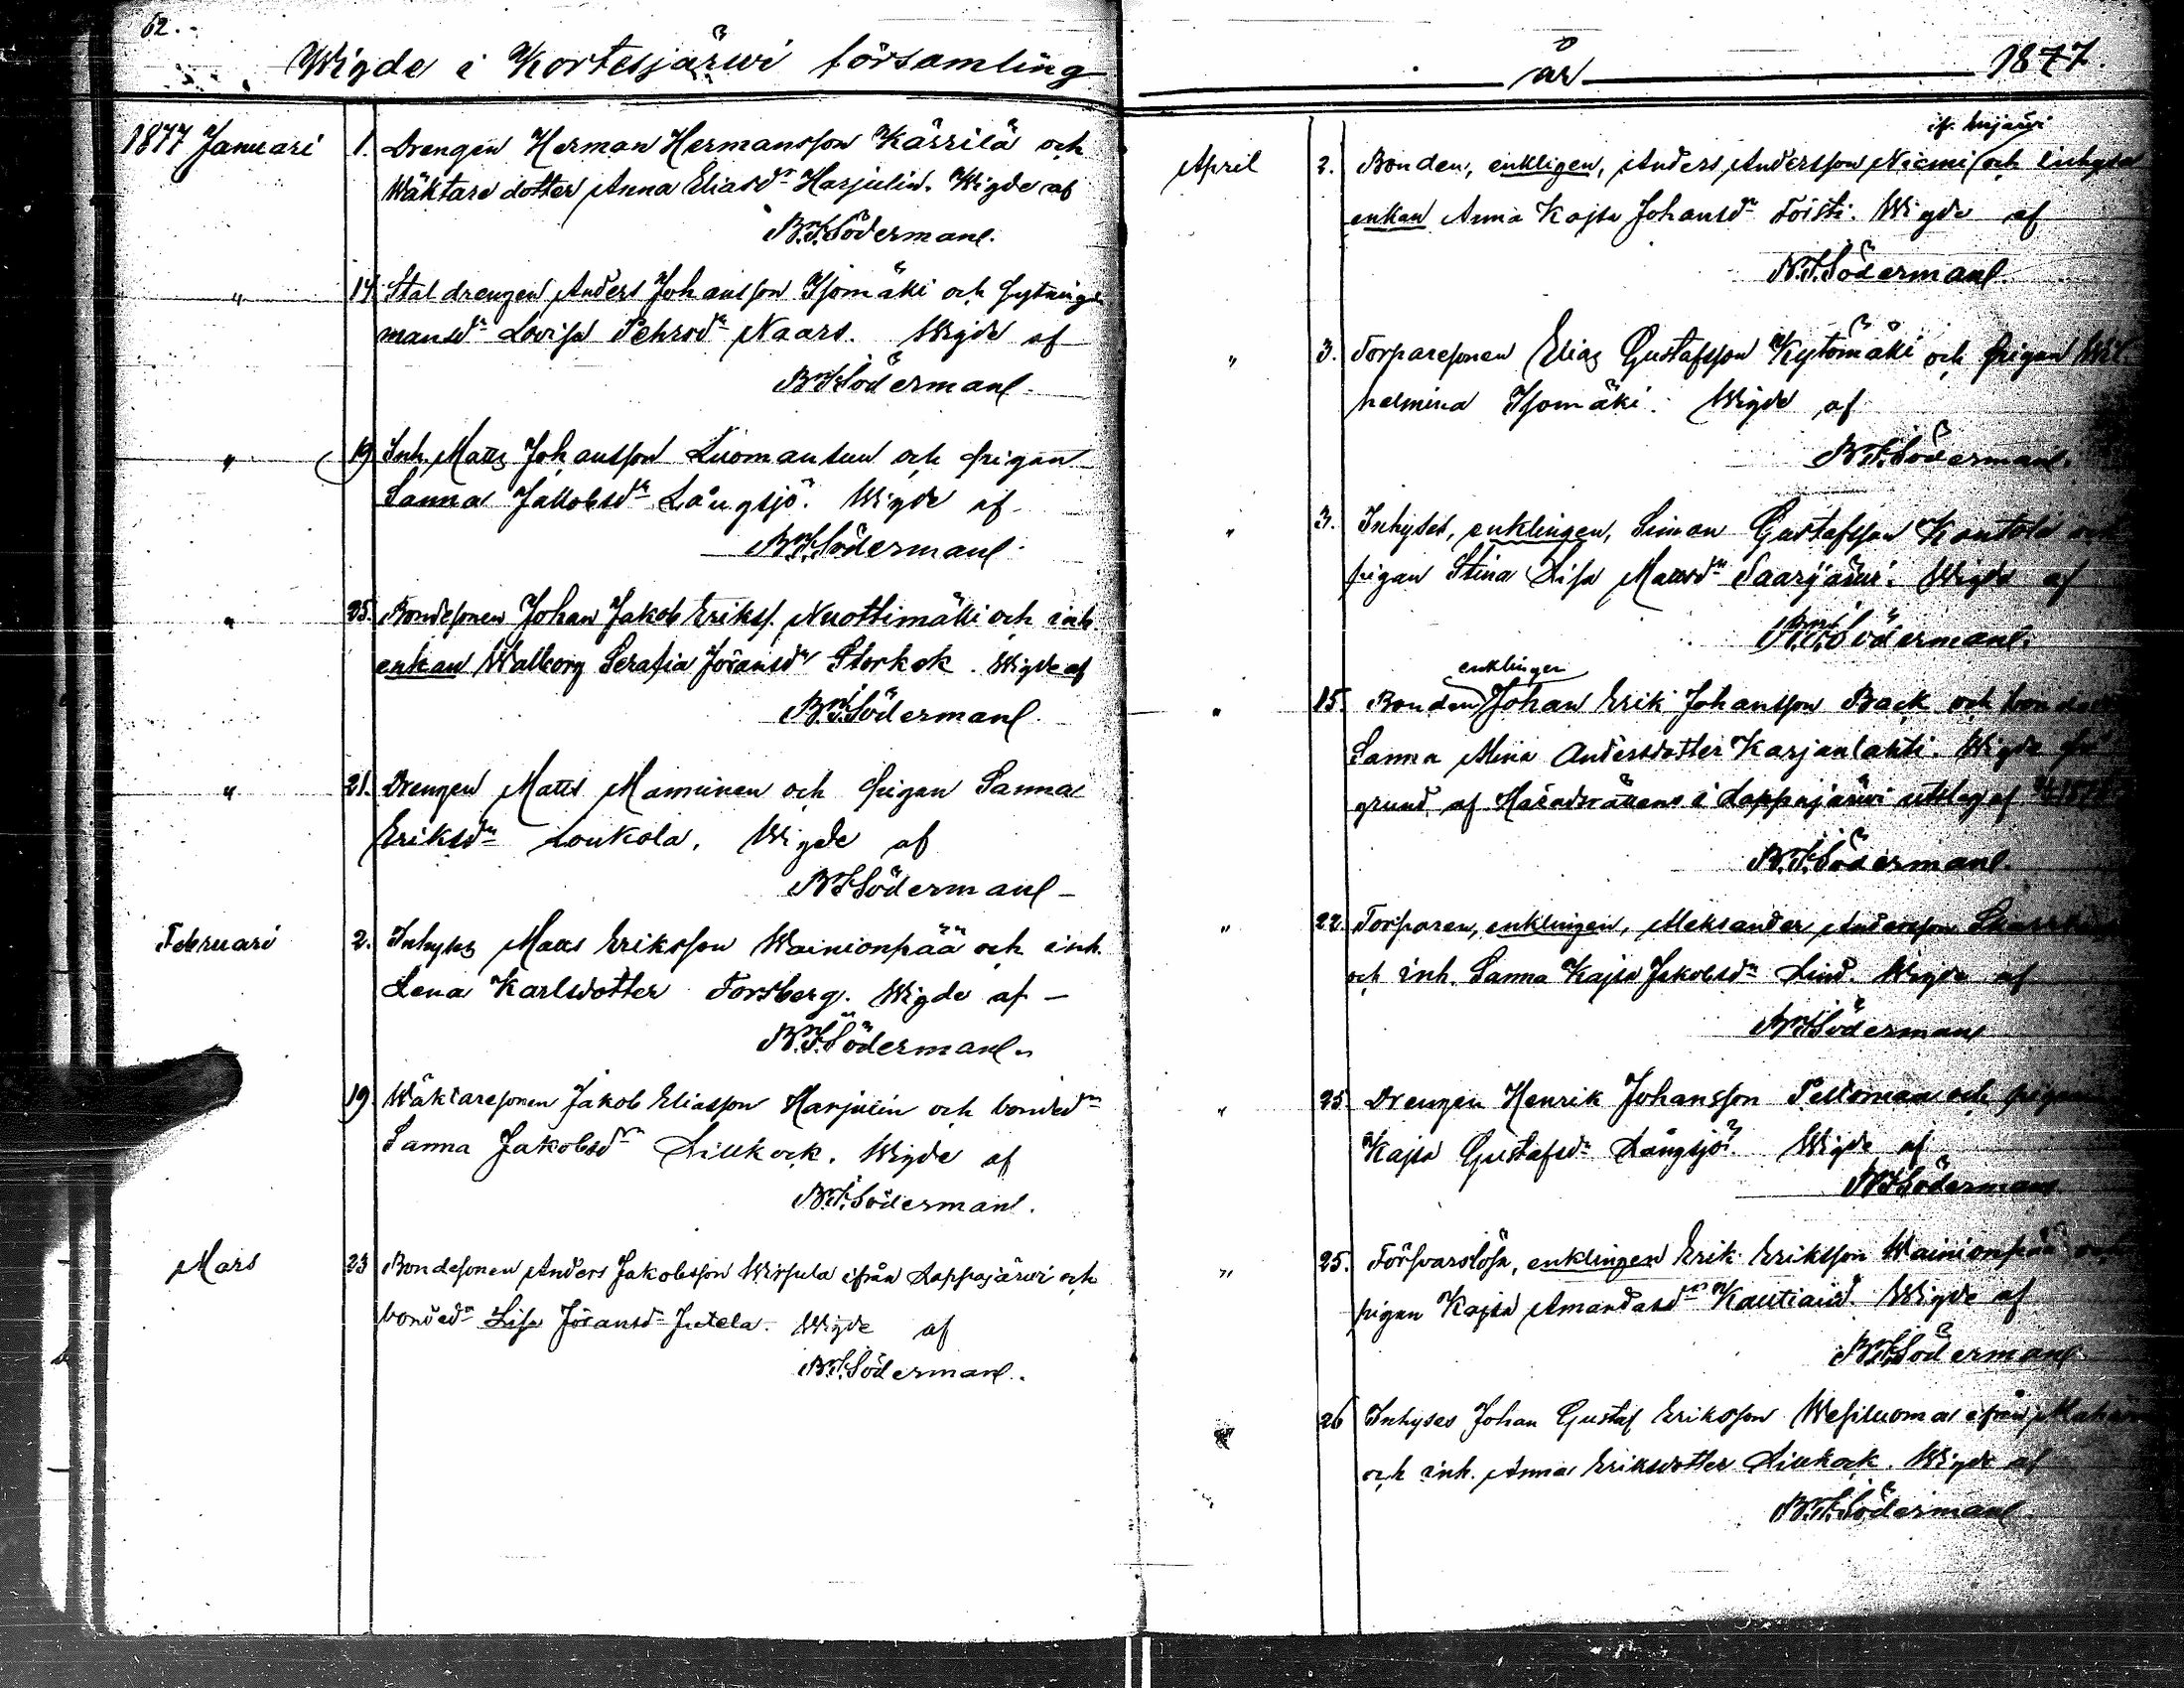 62.
Wigde i Kortesjärwi församling
1877 Januari 1. Drengen Herman Hermansson Kärrilä och
Wäktare dotter Anna Eliasdr Harjulin. Wigde af
B.F.Söderman.
" 14. Stal drengen Anders Johansson Isomäki och
mansdr Lovisa Pehrsdr Naars. Wigde af
B.F.Söderman.
" 19 Inh. Matts Johansson Luomansuu och pigan
Sanna Jakobsdr Långsjö. Wigde af
B.F.Söderman.
" 25. Bondesonen Johan Jakob Eriks. Nuottimäki och inh.
enkan Walborg Serafia Jöransdr Storkok. Wigde af
B.F.Söderman.
" 21. Drengen Matts Mamunen och pigan Sanna
Eriksdr Loukola. Wigde af
B.F.Söderman
Februari 2. Inhyses Matts Eriksson Wainionpää och inh.
Lena Karlsdotter Forsberg. Wigde af
B.F.Söderman.
19 Wäktaresonen Jakob Eliasson Harjulin och bondedr
Sanna Jakobsdr Lillkock. Wigde af
B.F.Söderman.
Mars 23 Bondesonen Anders Jakobsson Wirpula ifrån Lappajärwi och
bondedr Lisa Jöransdr Jutela. Wigde af
B.F.Söderman.
år 1877.
April 2. Bonden, enkligen, Anders Andersson Niemi och inhyses
enkan Anna Kajsa Johansdr Töisti. Wigde af
B.F.Söderman.
" 3. Torparesonen Elias Gustafsson Kytömäki och pigan Wil
helmina Isomäki. Wigde af
B.F.Söderman.
" 3. Inhyses, enklingen, Simon Gustafsson Kontola och
pigan Stina Lisa Mattsdr Saarijärwi. Wigde af
B.F.Söderman.
enklingen
" 15. Bonden Johan Erik Johansson Back och
Sanna Miina Andersdotter Karjanlahti. Wigde på
grund af Häradsrättens i Lappajärwi utslag af
B.F.Söderman.
" 22. Torparen, enklingen, Aleksander Andersson
och inh. Sanna Kajsa Jakobsdr Lind. Wigde af
B.F.Söderman
" 25. Drengen Henrik Johansson Peltomaa och pigan
Kajsa Gustafsdr Långsjö. Wigde af
B.F.Söderman
" 25. Försvarslösa, enklingen Erik Eriksson Wainionpää och
pigan Kajsa Amandasdr Kautiain. Wigde af
B.F.Söderman
" 26 Inhyses Johan Gustaf Eriksson Wesiluoma ifrån
och inh. Anna Eriksdotter Lillkock. Wigde af
B.F.Söderman.